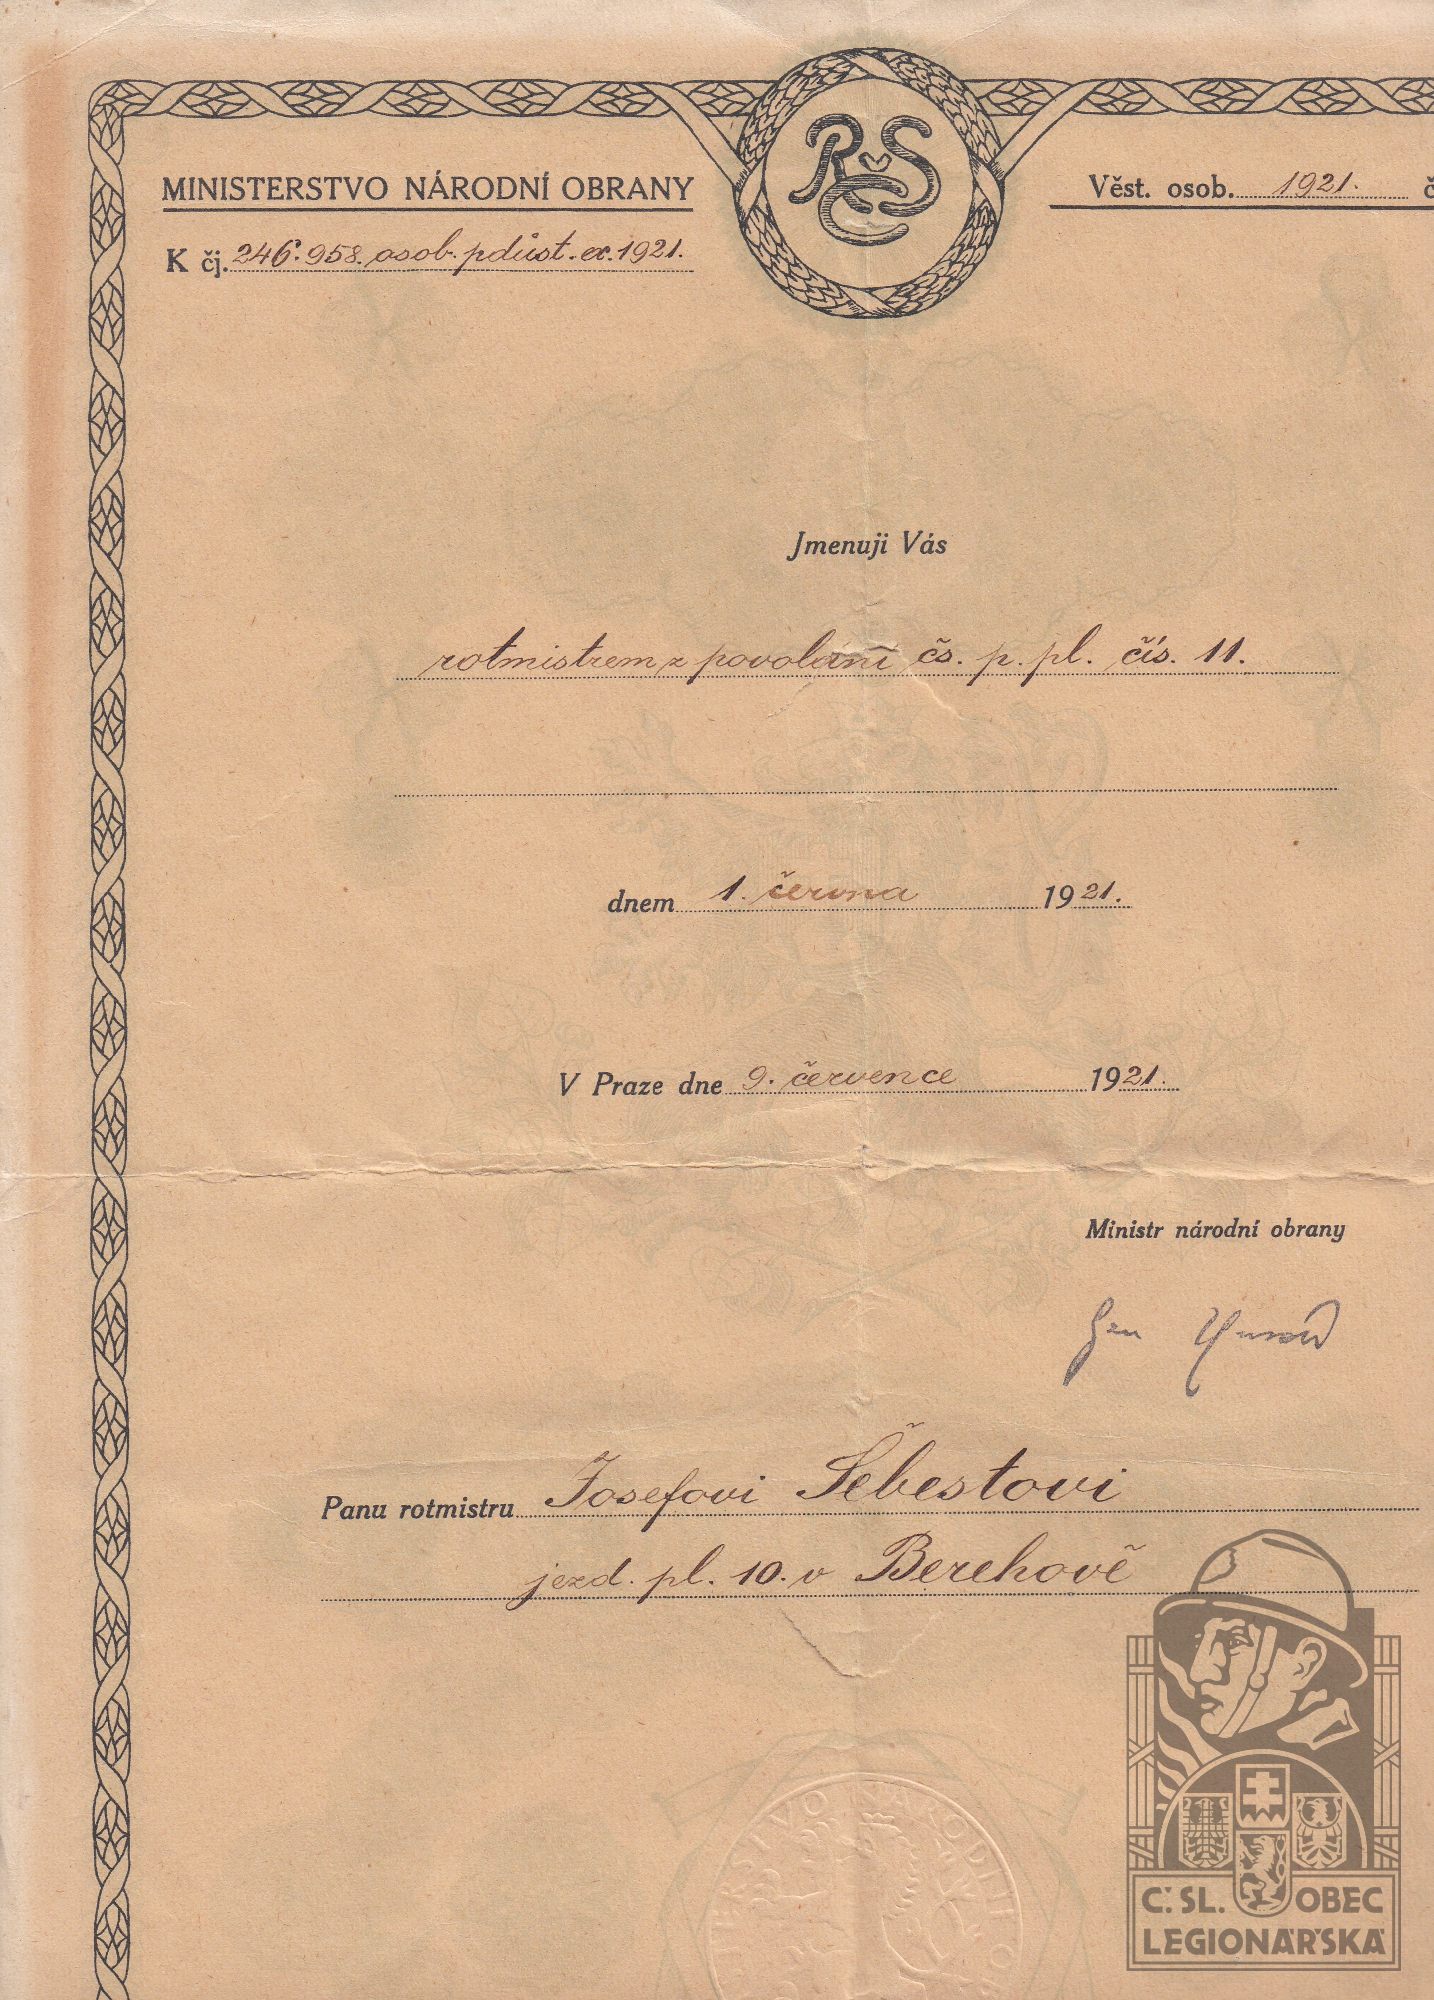 RČS
MINISTERSTVO NÁRODNÍ OBRANY
Věst. osob. 1921. č
K čj. 246.958. osob. pdůst. ex. 1921.
Jmenuji Vás
rotmistrem z povolání čs. p. pl. čís. 11.
dnem 1. června 1921.
V Praze dne 9. července 1921.
Ministr národní obrany
Gen
Panu rotmistru Josefovi Šebestovi
jezd. pl. 10. v Berehově
MINISTERSTVO NÁRODNÍ OBR
Č. SL. OBEC
LEGIONÁŘSKÁ